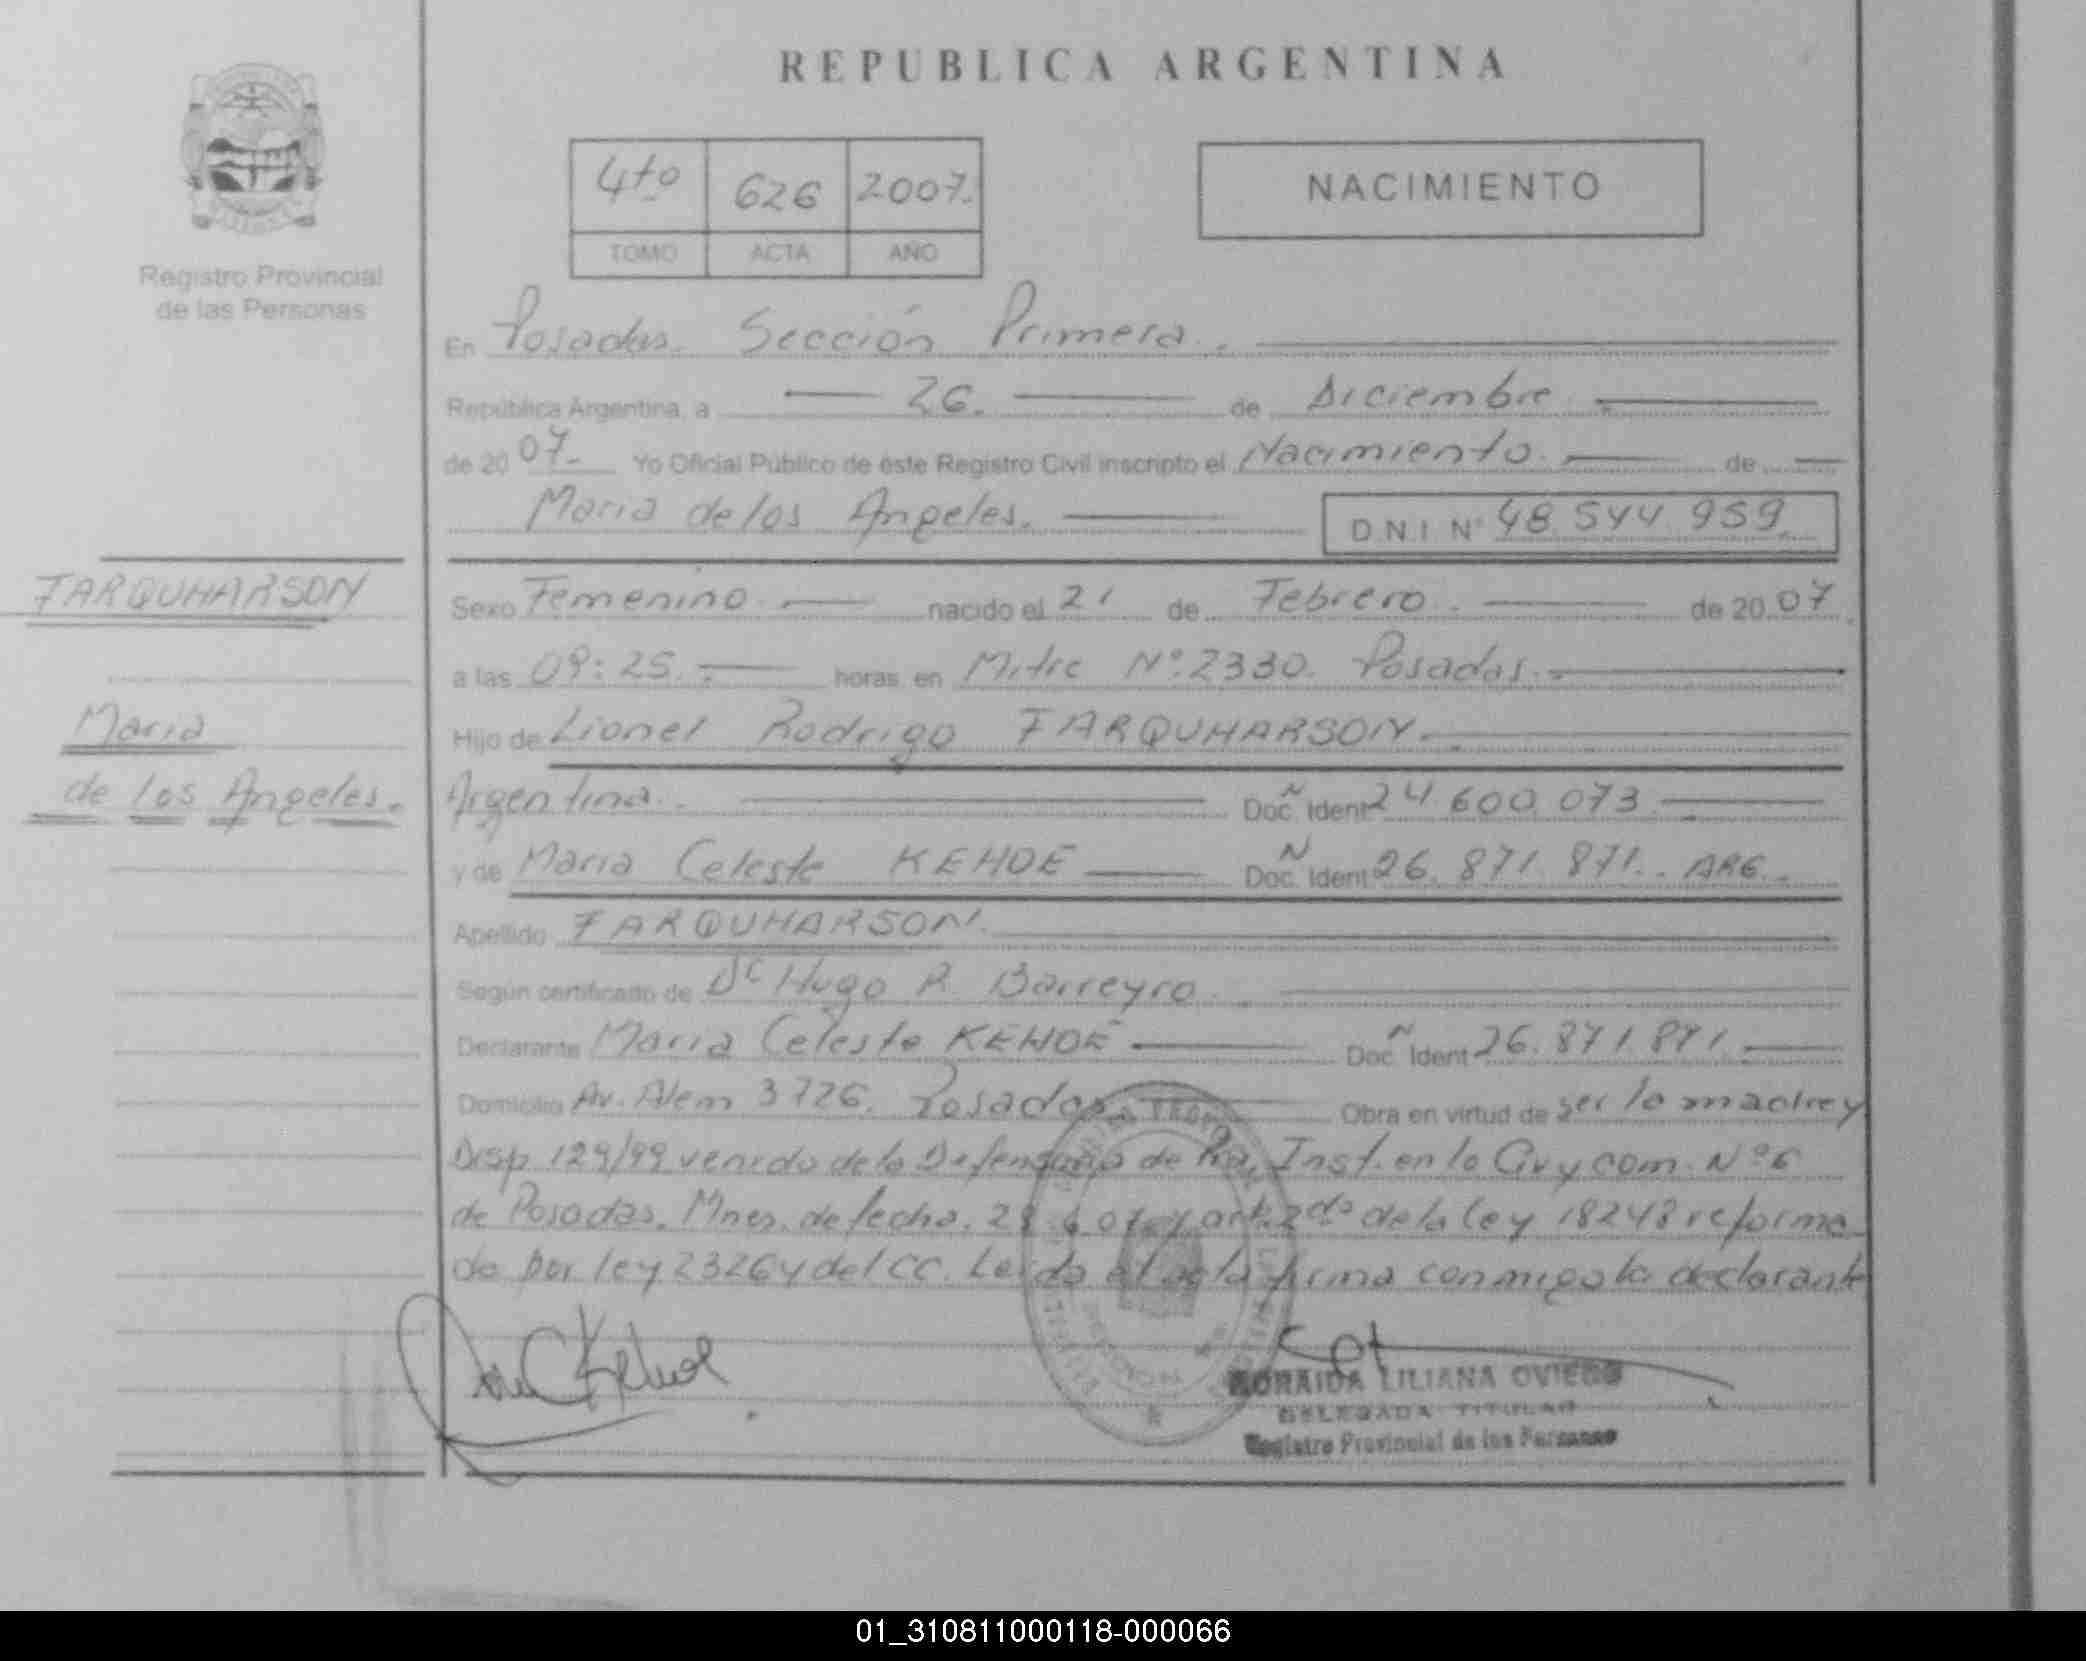 REPUBLICA ARGENTINA
4to 626 2007.
TOMO ACTA AÑO
NACIMIENTO
Registro Provincial
de las Personas
En Posadas. Sección Primera.
República Argentina, a 26. de Diciembre
de 2007. Yo Oficial Público de este Registro Civil inscripto el Nacimiento. de
Maria de los Angeles. D.N.I N° 48.544.959.
FARQUHARSON
Maria
de los Angeles.
Sexo Femenino. nacido el 21 de Febrero. de 2007.
a las 09:25. horas en Mitre N°.2330. Posadas.
Hijo de Lionel Rodrigo FARQUHARSON.
Argentina. Doc. Ident 24.600.073.
y de Maria Celeste KEHOE Doc. Ident 26.871.871. ARG.
Apellido FARQUHARSON.
Según certificado de Dr Hugo R. Barreyro.
Declarante Maria Celeste KEHOE Doc. Ident 26.871.871.
Domicilio Av. Alem 3726. Posadas Obra en virtud de ser la madre y
Disp 129/99 venida de la Defensoria de 1ra Inst. en lo Civ y com. N°6
de Posadas. Mnes. de fecha. y art. 2do de la Ley 18248 reforma
da por ley 23264 del CC. Leida el acta firma conmigo la declarante
Kehoe
ZORAIDA LILIANA OVIEDO
DELEGADA TITULAR
Registro Provincial de las Personas
01_310811000118-000066